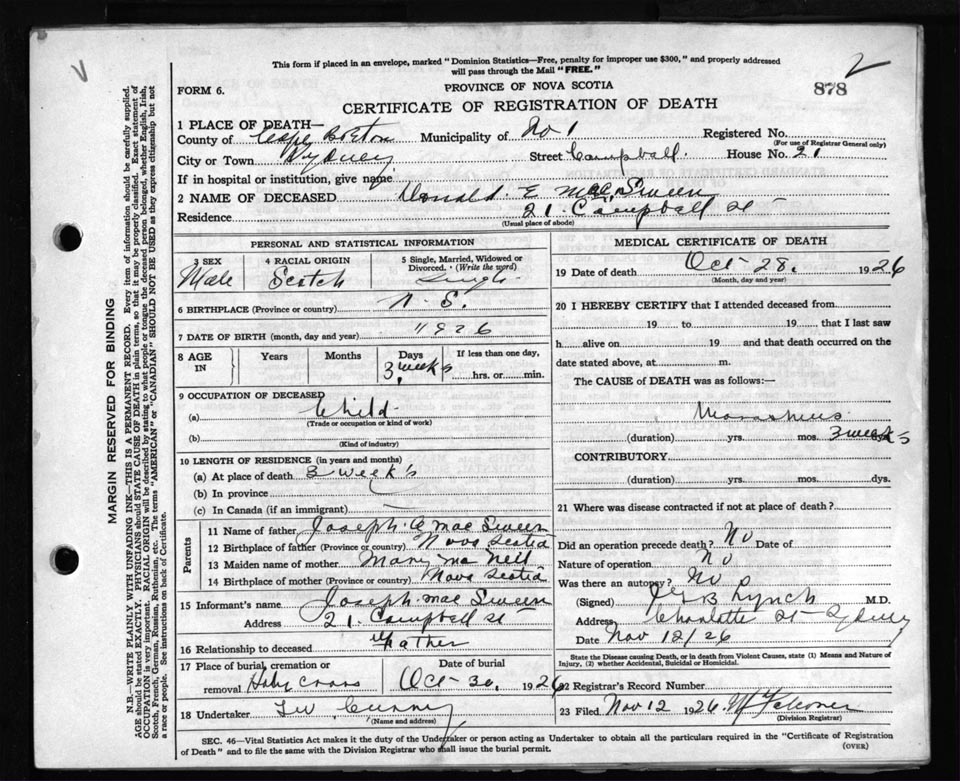 V
This form if placed in an envelope, marked "Dominion Statistics—Free, penalty for improper use $300," and properly addressed
will pass through the Mail "FREE."
2
FORM 6.
PROVINCE OF NOVA SCOTIA
878
CERTIFICATE OF REGISTRATION OF DEATH
1 PLACE OF DEATH—
County of Cape Breton Municipality of No 1 Registered No.
(For use of Registrar General only)
City or Town Sydney Street Campbell. House No. 21
If in hospital or institution, give name
2 NAME OF DECEASED Donald E Mac Sween
Residence 21 Campbell St
(Usual place of abode)
PERSONAL AND STATISTICAL INFORMATION
3 SEX 4 RACIAL ORIGIN 5 Single, Married, Widowed or Divorced. (Write the word)
Male Scotch Single
6 BIRTHPLACE (Province or country) N. S.
7 DATE OF BIRTH (month, day and year) 1926
8 AGE IN Years Months Days If less than one day,
3 weeks hrs. or min.
9 OCCUPATION OF DECEASED
(a) Child
(Trade or occupation or kind of work)
(b)
(Kind of industry)
10 LENGTH OF RESIDENCE (in years and months)
(a) At place of death 3 weeks
(b) In province
(c) In Canada (if an immigrant)
Parents
11 Name of father Joseph Mac Sween
12 Birthplace of father (Province or country) Nova Scotia
13 Maiden name of mother Mary Mc Neil
14 Birthplace of mother (Province or country) Nova Scotia
15 Informant's name Joseph Mac Sween
Address 21 Campbell St
16 Relationship to deceased Father
17 Place of burial, cremation or removal Holy Cross Date of burial Oct 30, 1926
18 Undertaker Curry
(Name and address)
MEDICAL CERTIFICATE OF DEATH
19 Date of death Oct 28. 1926
(Month, day and year)
20 I HEREBY CERTIFY that I attended deceased from
19 to 19 that I last saw
h alive on 19 and that death occurred on the
date stated above, at m.
The CAUSE of DEATH was as follows:—
Marasmus
(duration) yrs. mos. 3 weeks
CONTRIBUTORY
(duration) yrs. mos. dys.
21 Where was disease contracted if not at place of death?
Did an operation precede death? No Date of
Nature of operation No
Was there an autopsy? No
(Signed) B Lynch M.D.
Address Charlotte St Sydney
Date Nov 12/26
State the Disease causing Death, or in death from Violent Causes, state (1) Means and Nature of
Injury, (2) whether Accidental, Suicidal or Homicidal.
22 Registrar's Record Number
23 Filed Nov 12 1926
(Division Registrar)
SEC. 46—Vital Statistics Act makes it the duty of the Undertaker or person acting as Undertaker to obtain all the particulars required in the "Certificate of Registration
of Death" and to file the same with the Division Registrar who shall issue the burial permit.
(OVER)
MARGIN RESERVED FOR BINDING
N.B.—WRITE PLAINLY WITH UNFADING INK—THIS IS A PERMANENT RECORD. Every item of information should be carefully supplied.
AGE should be stated EXACTLY. PHYSICIANS should STATE CAUSE OF DEATH in plain terms, so that it may be properly classified. Exact statement of
OCCUPATION is very important. RACIAL ORIGIN will be described by stating to what people or tongue the deceased person belonged, whether English, Irish,
Scotch, French, German, Russian, Ruthenian, etc. The terms "AMERICAN" or "CANADIAN" SHOULD NOT BE USED as they express citizenship but not
a race or people. See instructions on back of Certificate.